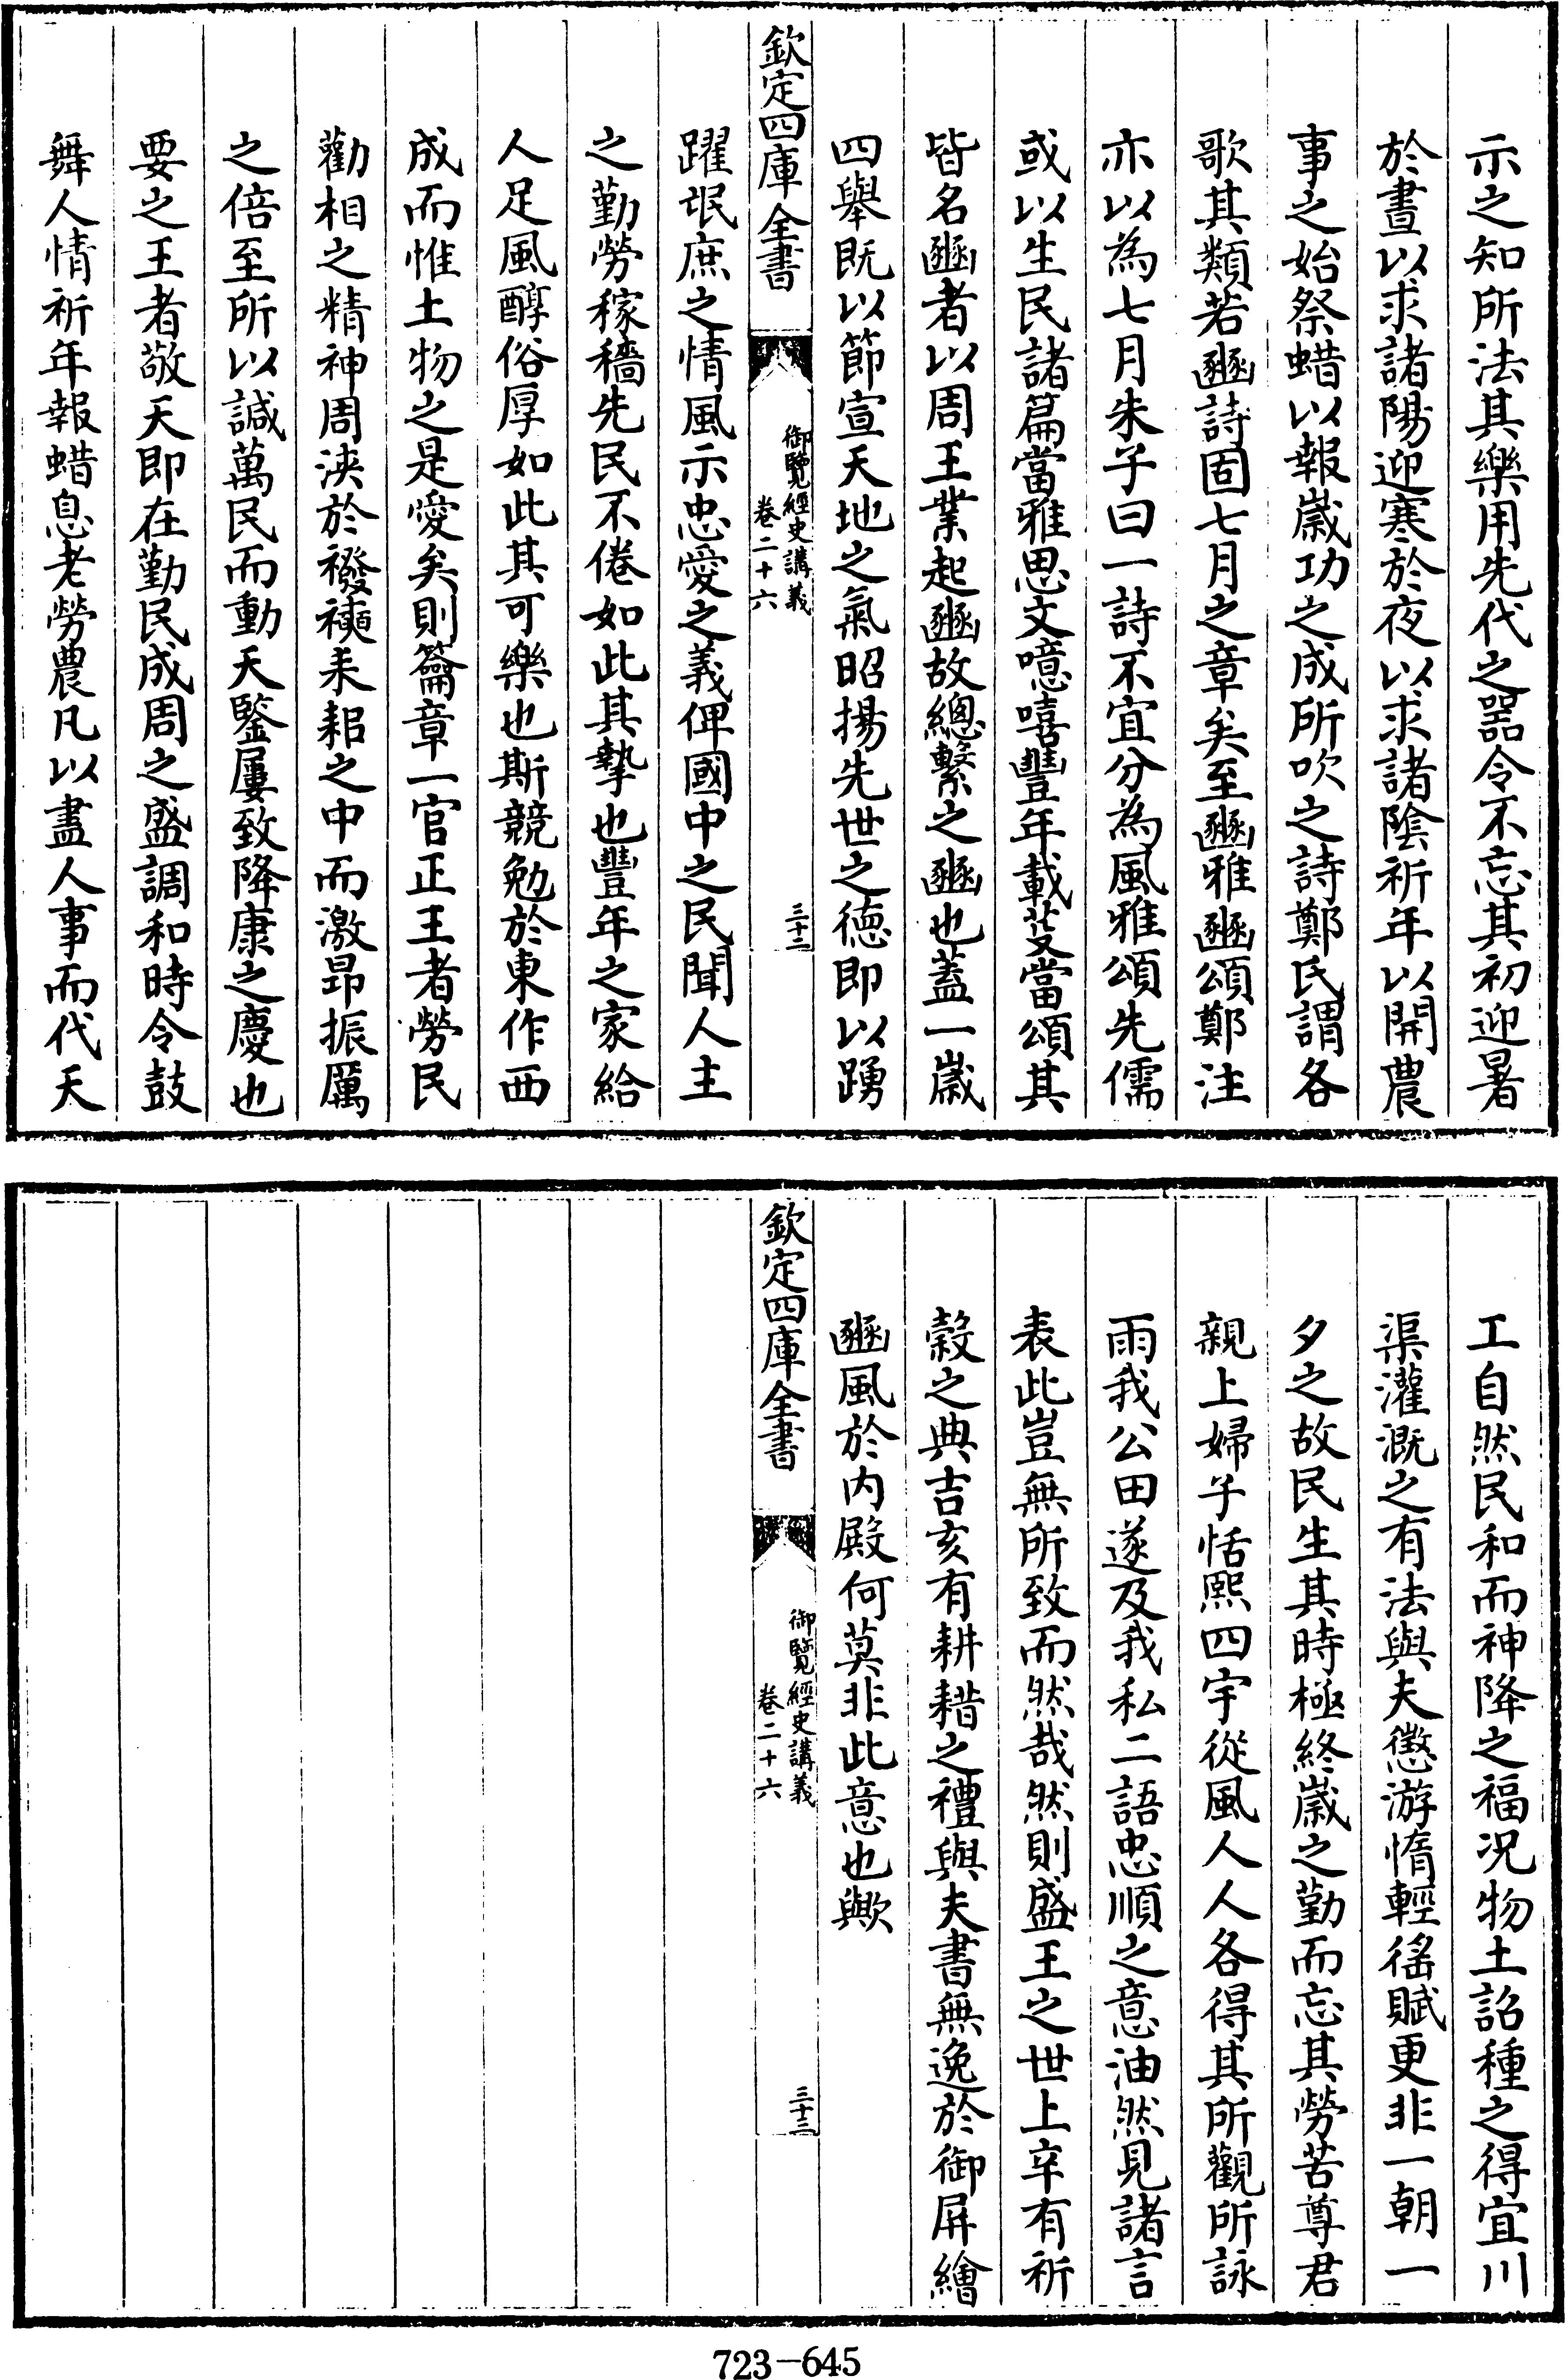 示之知所法其樂用先代之器令不忘其初迎暑
於晝以求諸陽迎寒於夜以求諸陰祈年以開農
事之始祭蜡以報歲功之成所吹之詩鄭氏謂各
歌其類若豳詩固七月之章矣至豳雅豳頌鄭注
亦以為七月朱子曰一詩不宜分為風雅頌先儒
或以生民諸篇當雅思文噫嘻豐年載芟當頌其
皆名豳者以周王業起豳故總繫之豳也蓋一歲
四舉既以節宣天地之氣昭揚先世之德即以踴
欽定四庫全書
御覽經史講義
卷二十六
三十二
躍氓庶之情風示忠愛之義俾國中之民聞人主
之勤勞稼穡先民不倦如此其摯也豐年之家給
人足風醇俗厚如此其可樂也斯競勉於東作西
成而惟土物之是愛矣則籥章一官正王者勞民
勸相之精神周浹於襏襫耒耜之中而激昂振厲
之倍至所以諴萬民而動天鑒屢致降康之慶也
要之王者敬天即在勤民成周之盛調和時令鼓
舞人情祈年報蜡息老勞農凡以盡人事而代天
工自然民和而神降之福况物土詔種之得宜川
渠灌溉之有法與夫懲游惰輕徭賦更非一朝一
夕之故民生其時極終歲之勤而忘其勞苦尊君
親上婦子恬熙四宇從風人人各得其所觀所詠
雨我公田遂及我私二語忠順之意油然見諸言
表此豈無所致而然哉然則盛王之世上辛有祈
穀之典吉亥有耕耤之禮與夫書無逸於御屏繪
豳風於内殿何莫非此意也歟
欽定四庫全書
御覽經史講義
卷二十六
三十三
723-645